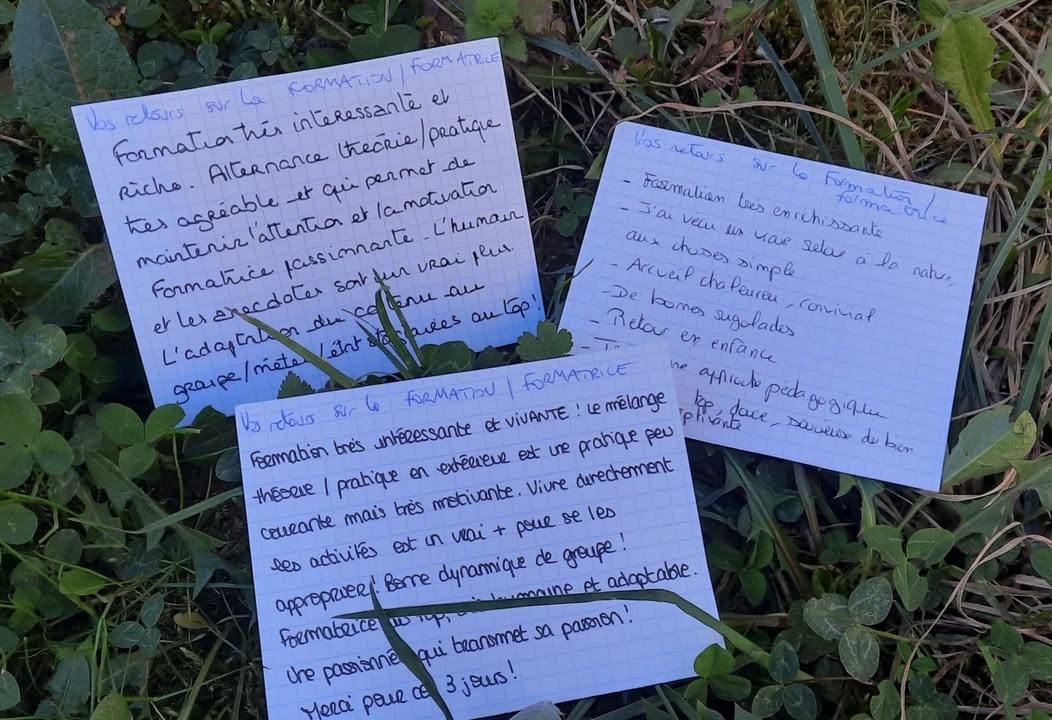 Vos retours sur la FORMATION / FORMATRICE
Formation très intéressante et
riche. Alternance théorie/pratique
très agréable et qui permet de
maintenir l'attention et la motivation
Formatrice passionnante. L'humain
et les anecdotes sont un vrai plus.
L'adaptation du contenu au
groupe/météo/ au top!
Vos retours sur la Formation/
formatrice
- Formation très enrichissante
- J'ai vécu un vrai retour à la nature,
aux choses simple
- Accueil chaleureu, convivial
- De bonnes rigolades
- Retour en enfance
approche pédagogique
top, douce, soucieuse du bien
captivante
Vos retours sur la FORMATION / FORMATRICE
Formation très intéressante et VIVANTE ! Le mélange
théorie / pratique en extérieur est une pratique peu
courante mais très motivante. Vivre directement
les activités est un vrai + pour se les
approprier ! Bonne dynamique de groupe !
Formatrice au top, humaine et adaptable.
Une passionnée qui transmet sa passion !
Merci pour ces 3 jours !